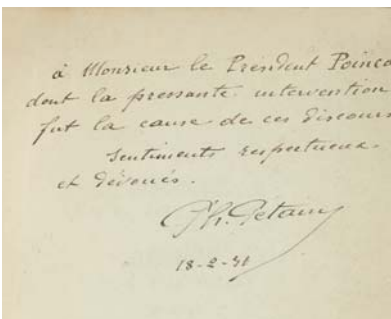 à Monsieur le Président Poinca
dont la pressante intervention
fut la cause de ces discours
Sentiments respectueux
et dévoués.
Ph. Pétain
18-2-31